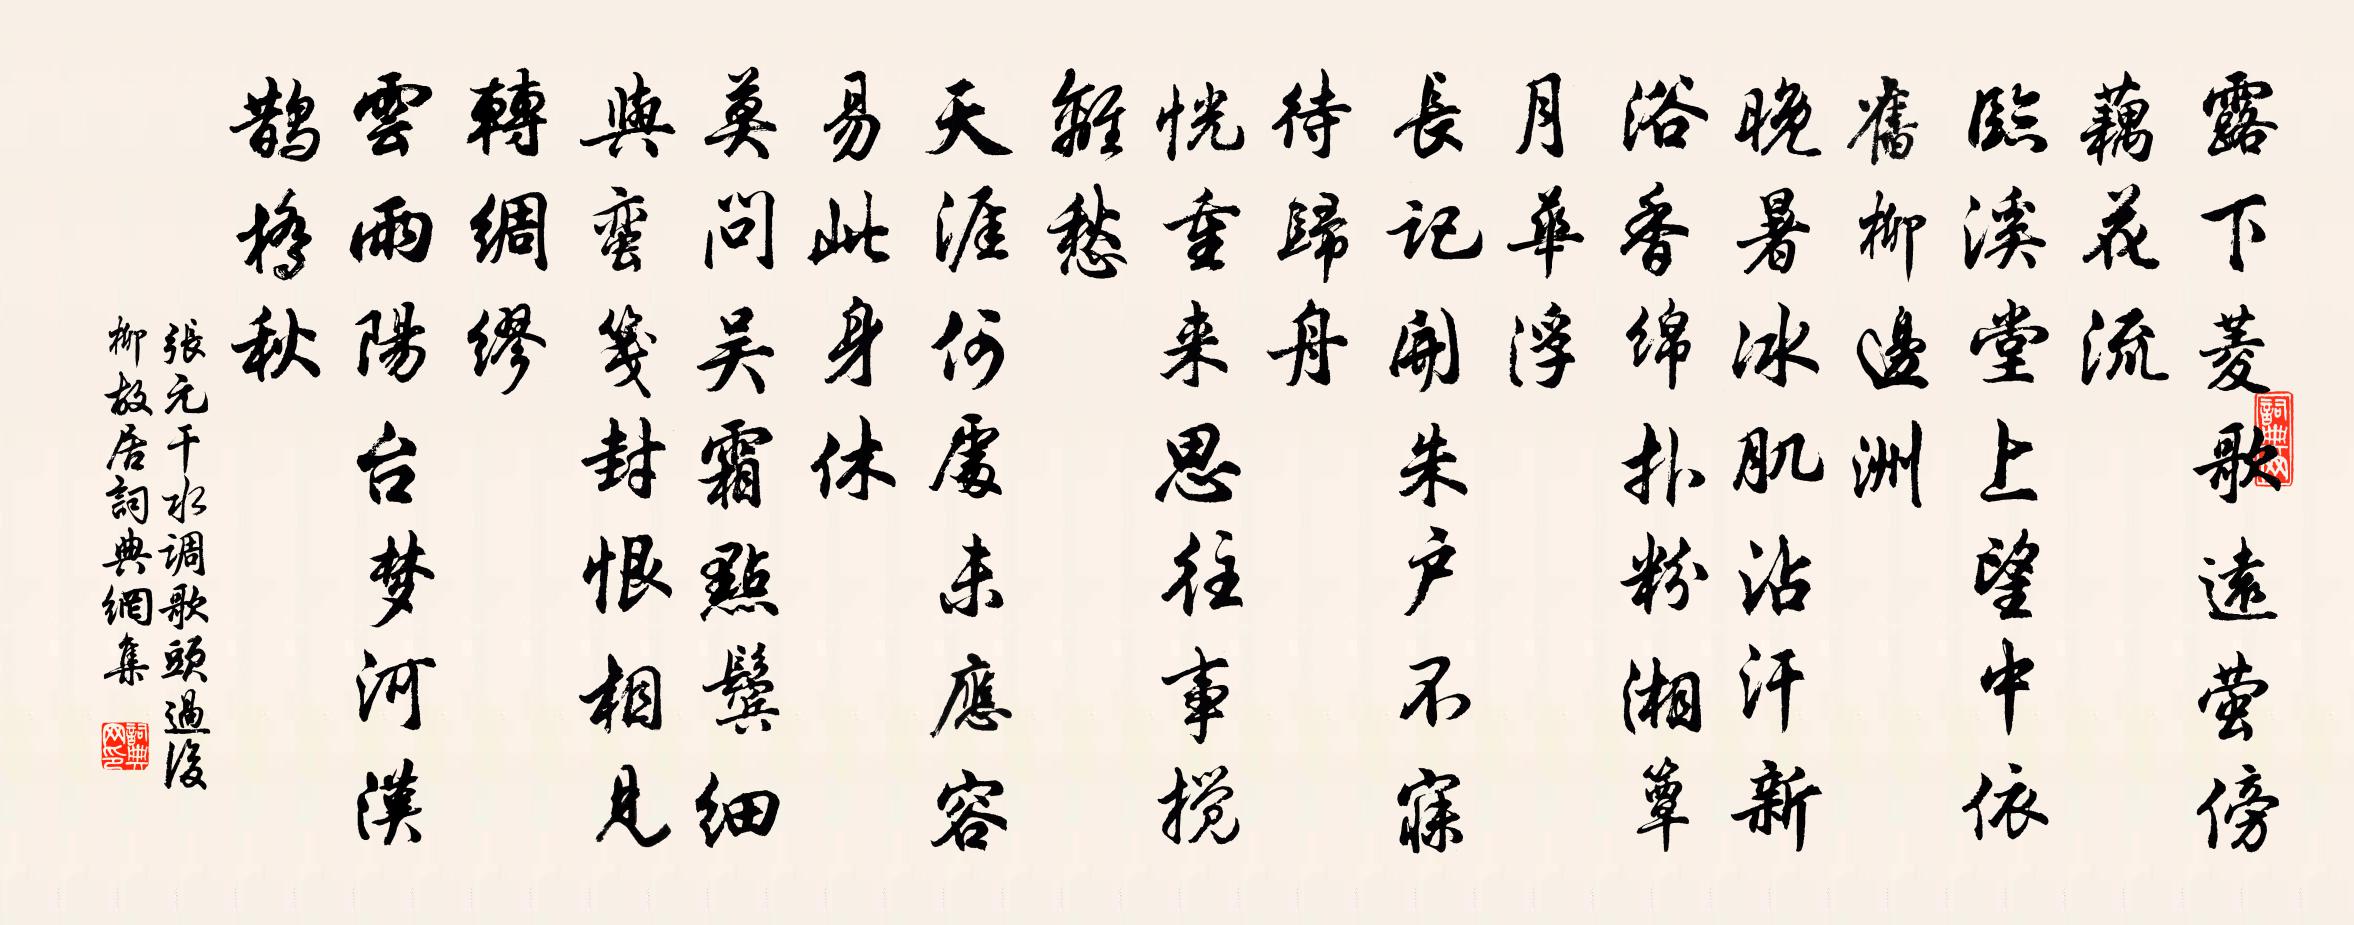 露下菱歌遠萤傍
藕花流
臨溪堂上望中依
舊柳邊洲
晚暑冰肌沾汗新
浴香绵扑粉湘簟
月華浮
長記開朱户不寐
待歸舟
恍重来思往事搅
離愁
天涯何處未應容
易此身休
莫問吴霜點鬓细
與蛮箋封恨相見
轉綢繆
雲雨陽台梦河漢
鹊橋秋
張元干水调歌頭過後
柳故居詞典網集
詞典网
詞典网印